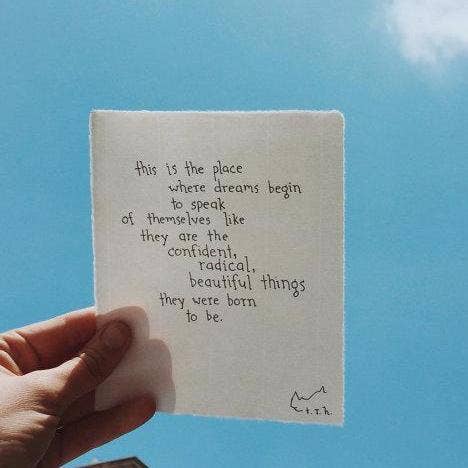 this is the place
where dreams begin
to speak
of themselves like
they are the
confident,
radical,
beautiful things
they were born
to be.
t.r.h.